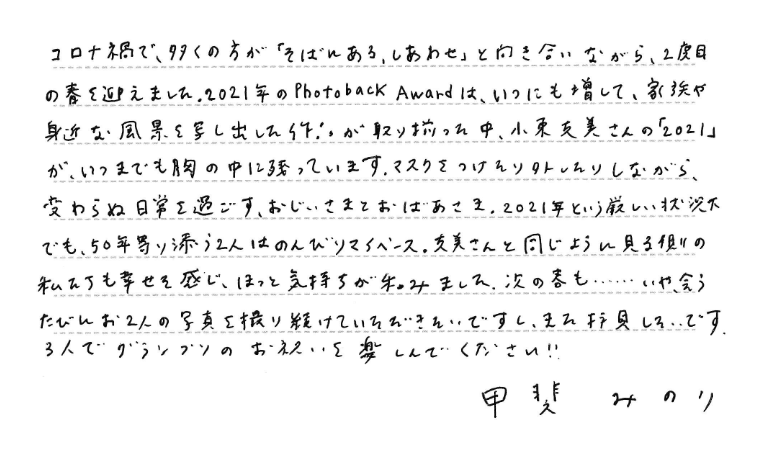 コロナ禍で、多くの方が「そばにある、しあわせ」と向き合いながら、2度目
の春を迎えました。2021年のPhotoback Awardは、いつにも増して、家族や
身近な風景を写し出した作品が取り揃った中、小東友美さんの「2021」
が、いつまでも胸の中に残っています。マスクをつけたり外したりしながら、
変わらぬ日常を過ごす、おじいさまとおばあさま。2021年という厳しい状況下
でも、50年寄り添う2人はのんびりマイペース。友美さんと同じように見る側の
私たちも幸せを感じ、ほっと気持ちが和みました。次の春も……いや、会う
たびにお2人の写真を撮り続けていただきたいですし、また拝見したいです。
3人でグランプリのお祝いを楽しんでください!!
甲斐みのり